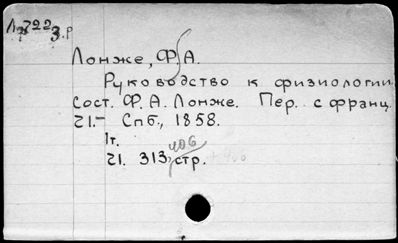 Лонже, Ф. А.
Руководство к физиологии
Сост. Ф. А. Лонже. Пер. с франц.
Ч1.– Спб., 1858.
1т.
406
Ч1. 313, стр.